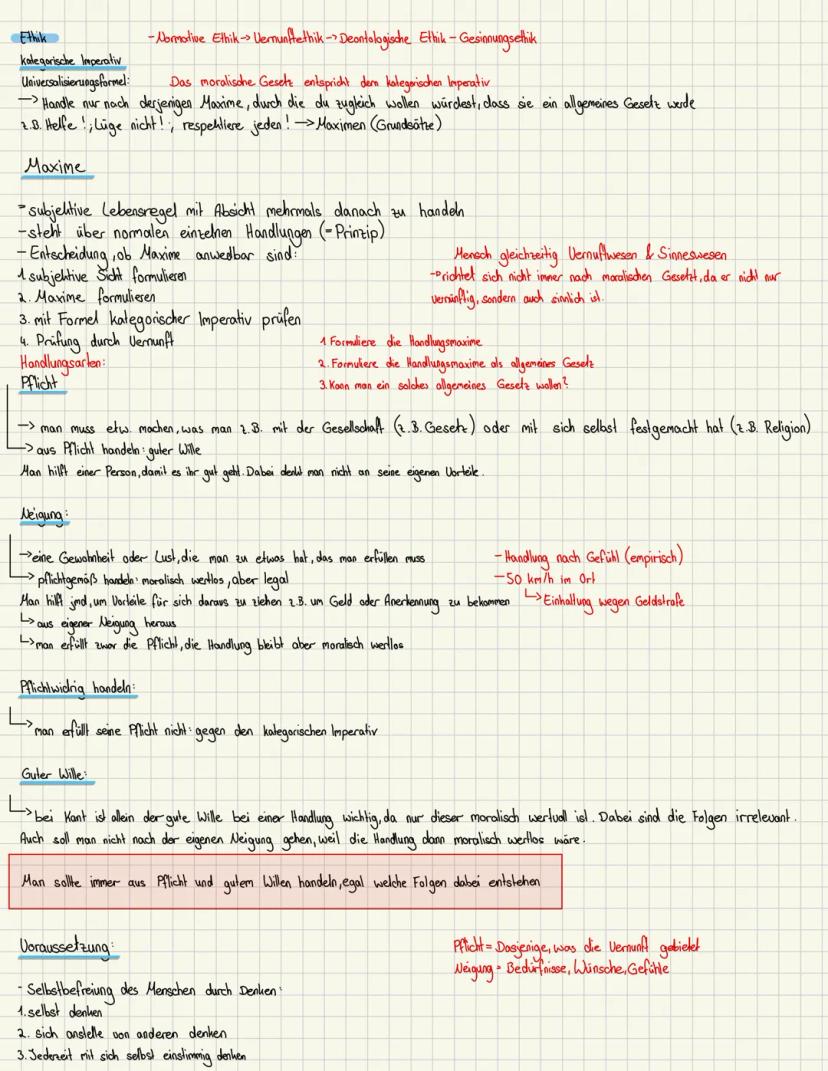 Ethik
- Normative Ethik → Vernunftethik → Deontologische Ethik - Gesinnungsethik
Kategorische Imperativ
Universalisierungsformel: Das moralische Gesetz entspricht dem kategorischen Imperativ
→ Handle nur nach derjenigen Maxime, durch die du zugleich wollen würdest, dass sie ein allgemeines Gesetz werde
z.B. Helfe!; Lüge nicht!; respektiere jeden! → Maximen (Grundsätze)
Maxime
- subjektive Lebensregel mit Absicht mehrmals danach zu handeln
- steht über normalen einzelnen Handlungen (= Prinzip)
- Entscheidung, ob Maxime anwedbar sind:
1. subjektive Sicht formulieren
2. Maxime formulieren
3. mit Formel kategorischer Imperativ prüfen
4. Prüfung durch Vernunft
Mensch gleichzeitig Vernuftwesen & Sinneswesen
→ richtet sich nicht immer nach moralischen Gesetzt, da er nicht nur
vernünftig, sondern auch sinnlich ist.
1. Formuliere die Handlungsmaxime
2. Formuliere die Handlungsmaxime als allgemeines Gesetz
3. Kann man ein solches allgemeines Gesetz wollen?
Handlungsarten:
Pflicht
→ man muss etw. machen, was man z.B. mit der Gesellschaft (z.B. Gesetz) oder mit sich selbst festgemacht hat (z.B. Religion)
→ aus Pflicht handeln: guter Wille
Man hilft einer Person, damit es ihr gut geht. Dabei denkt man nicht an seine eigenen Vorteile.
Neigung:
→ eine Gewohnheit oder Lust, die man zu etwas hat, das man erfüllen muss
→ pflichtgemäß handeln: moralisch wertlos, aber legal
Man hilft jmd, um Vorteile für sich daraus zu ziehen z.B. um Geld oder Anerkennung zu bekommen
↳ aus eigener Neigung heraus
↳ man erfüllt zwar die Pflicht, die Handlung bleibt aber moralisch wertlos
- Handlung nach Gefühl (empirisch)
- 50 km/h im Ort
↳ Einhaltung wegen Geldstrafe
Pflichtwidrig handeln:
→ man erfüllt seine Pflicht nicht: gegen den kategorischen Imperativ
Guter Wille:
→ bei Kant ist allein der gute Wille bei einer Handlung wichtig, da nur dieser moralisch wertvoll ist. Dabei sind die Folgen irrelevant.
Auch soll man nicht nach der eigenen Neigung gehen, weil die Handlung dann moralisch wertlos wäre.
Man sollte immer aus Pflicht und gutem Willen handeln, egal welche Folgen dabei entstehen
Voraussetzung:
- Selbstbefreiung des Menschen durch Denken:
1. selbst denken
2. sich anstelle von anderen denken
3. Jederzeit mit sich selbst einstimmig denken
Pflicht = Dasjenige, was die Vernunft gebietet
Neigung = Bedürfnisse, Wünsche, Gefühle